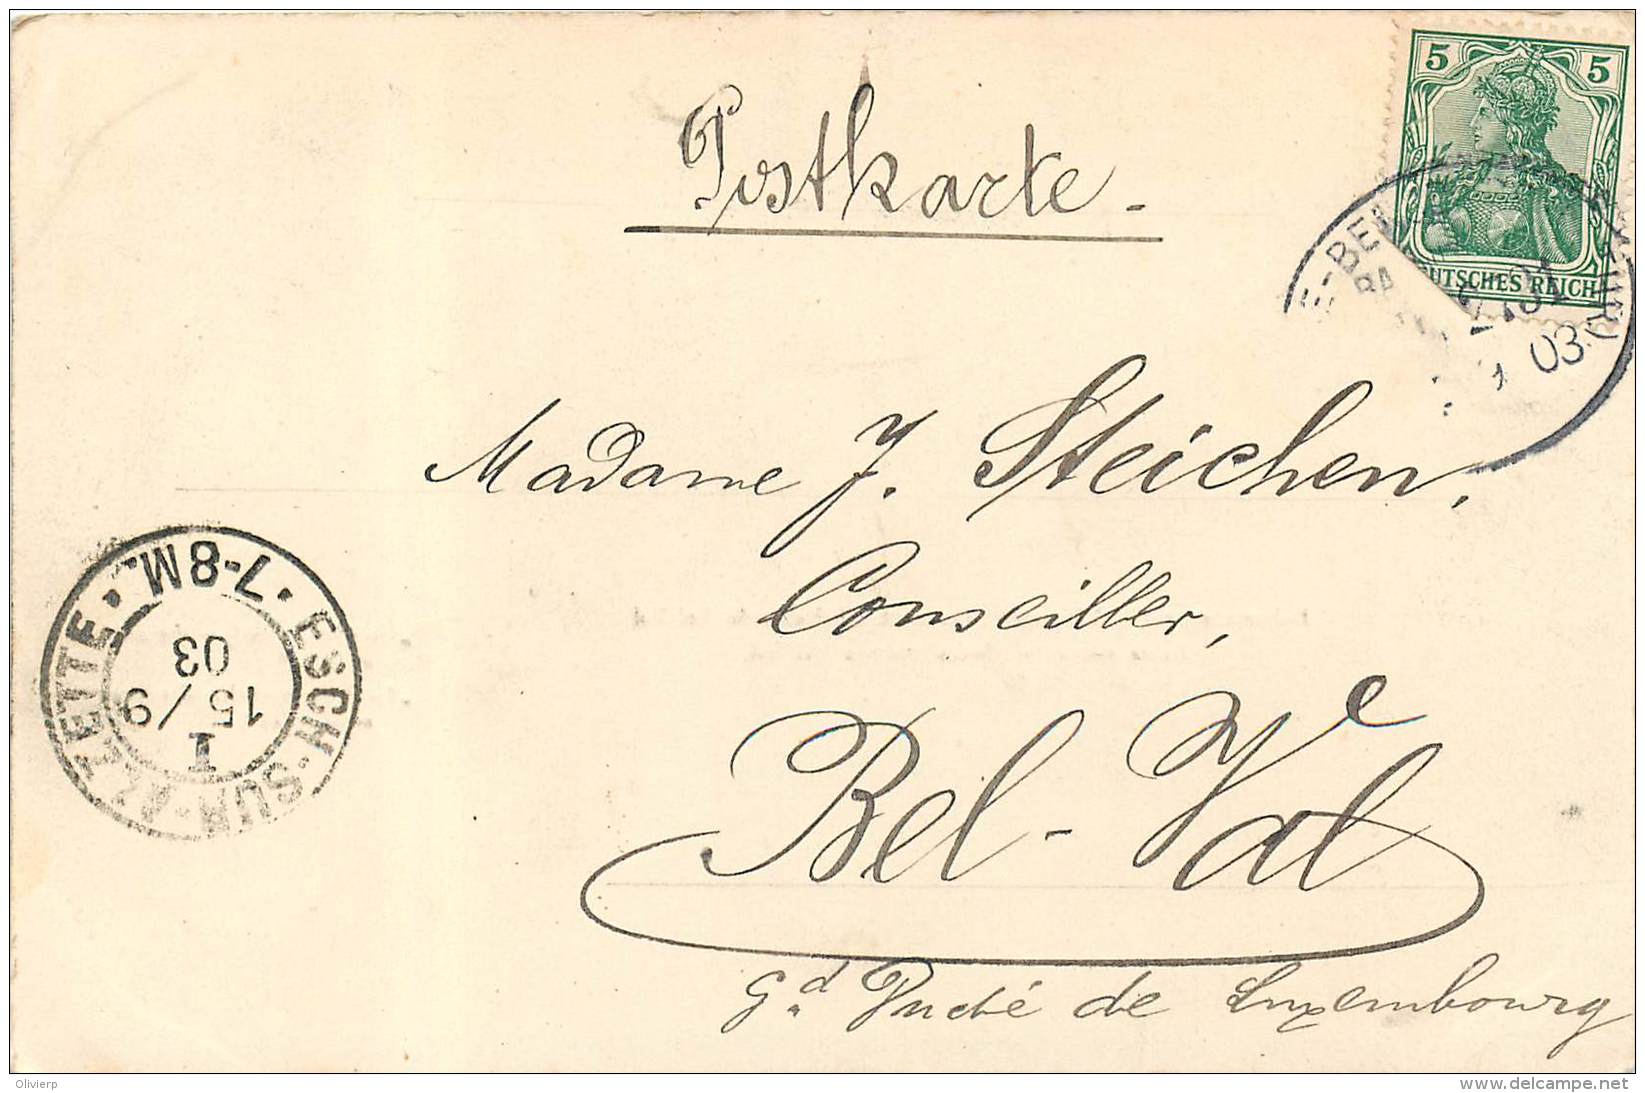 5 5
DEUTSCHES REICH
Postkarte.
03
Madame J. Steichen,
Conseiller,
Bel-Val
Gd Duché de Luxembourg
ESCH-SUR-ALZETTE • 7-8M. •
I
15/9
03
Olivierp
delcampe.net